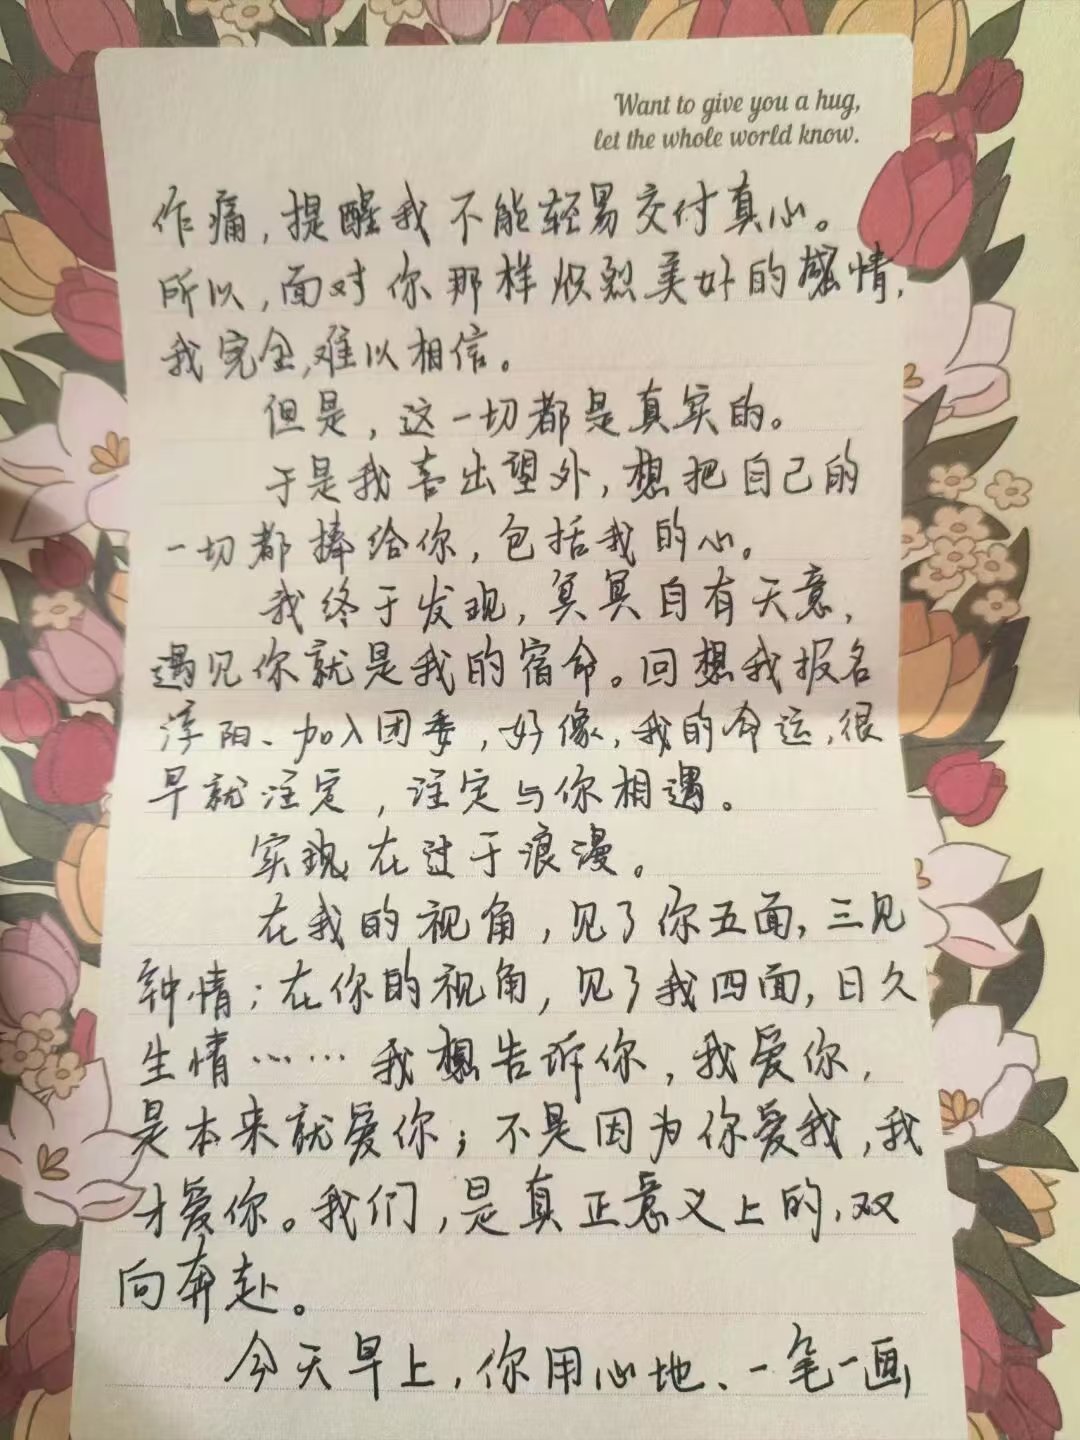 Want to give you a hug,
let the whole world know.
作痛，提醒我不能轻易交付真心。
所以，面对你那样炽烈美好的感情，
我完全，难以相信。
但是，这一切都是真实的。
于是我喜出望外，想把自己的
一切都捧给你，包括我的心。
我终于发现，冥冥自有天意，
遇见你就是我的宿命。回想我报名
浮阳、加入团委，好像，我的命运，很
早就注定，注定与你相遇。
实现在过于浪漫。
在我的视角，见了你五面，三见
钟情；在你的视角，见了我四面，日久
生情……我想告诉你，我爱你，
是本来就爱你；不是因为你爱我，我
才爱你。我们，是真正意义上的，双
向奔赴。
今天早上，你用心地、一笔一画